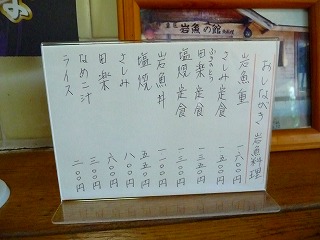 おしながき 岩魚料理
岩魚重 一六〇〇円
さしみ定食 一五〇〇円
田楽定食 一三五〇円
塩焼定食 一三〇〇円
岩魚丼 一一〇〇円
塩焼 五五〇円
さしみ 八〇〇円
田楽 六〇〇円
なめこ汁 三〇〇円
ライス 二〇〇円
岩魚の館